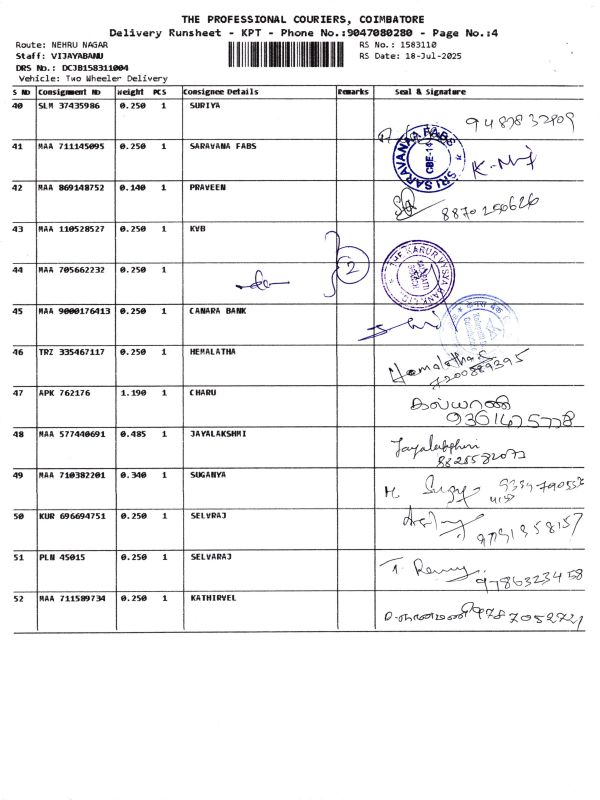 THE PROFESSIONAL COURIERS, COIMBATORE
Delivery Runsheet - KPT - Phone No.:9047080280 - Page No.:4
Route: NEHRU NAGAR
RS No.: 1583110
Staff: VIJAYABANU
RS Date: 18-Jul-2025
DRS No.: DCJB158311004
Vehicle: Two Wheeler Delivery
S No Consignment No Weight PCS Consignee Details Remarks Seal & Signature
40 SLM 37435986 0.250 1 SURIYA
41 MAA 711145095 0.250 1 SARAVANA FABS
SRI SARAVANA FABS
42 MAA 869148752 0.140 1 PRAVEEN
8870250626
43 MAA 110528527 0.250 1 KVB
2
44 MAA 705662232 0.250 1
45 MAA 9000176413 0.250 1 CANARA BANK
46 TRZ 335467117 0.250 1 HEMALATHA
Hemalatha
7200889395
47 APK 762176 1.190 1 CHARU
48 MAA 577440691 0.485 1 JAYALAKSHMI
49 MAA 710382201 0.340 1 SUGANYA
50 KUR 696694751 0.250 1 SELVRAJ
9791358157
51 PLN 45015 0.250 1 SELVARAJ
9786323458
52 MAA 711589734 0.250 1 KATHIRVEL
9787052721